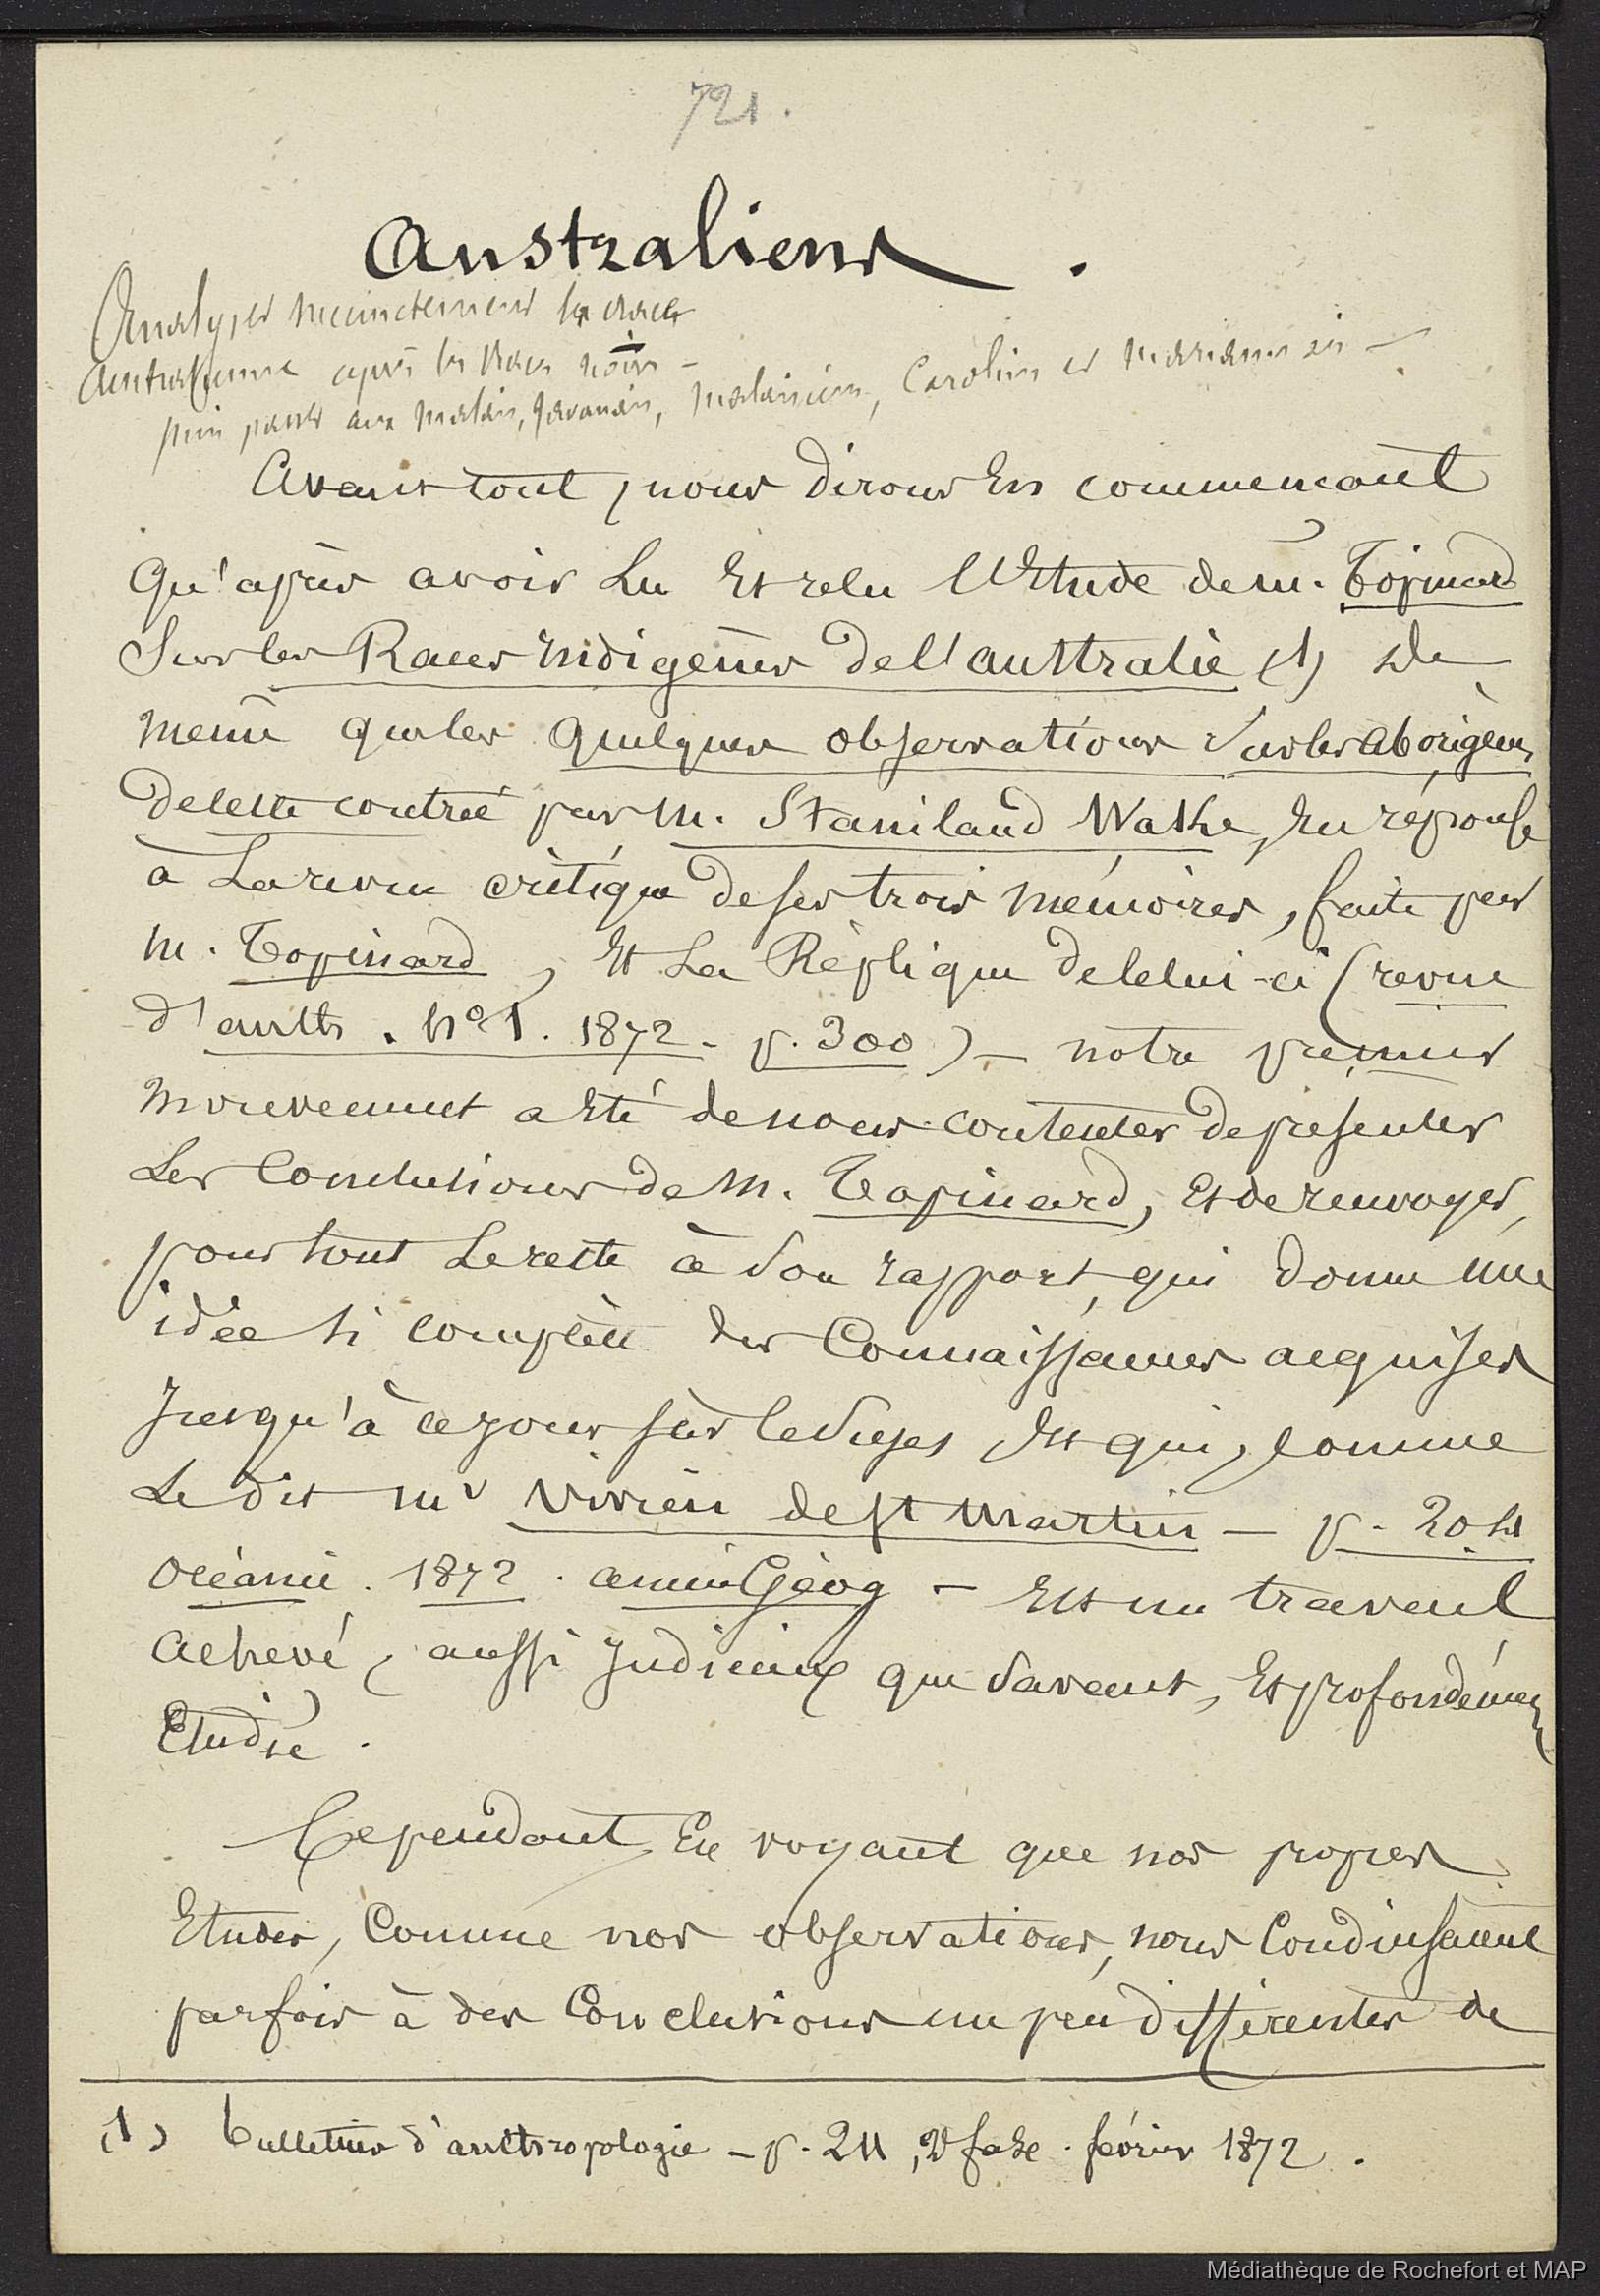 721.
Australiens.
Analyser succinctement les races
australienne après les races noires –
puis passer aux malais, javanais, malaisiens, Carolins et mariannais –
Avant tout, nous dirons En commencant
qu'après avoir Lu Et relu l'Etude de m. Topinard
Sur les Races Indigènes de l'australie (1) de
même que les quelques observations Sur les aborigènes
de cette contrée par m. Staniland Wake, En réponse
à La revue critique de ses trois mémoires, faite par
m. Topinard, Et La Réplique de celui-ci (revue
d'anth. No 1. 1872 - p. 300) – notre premier
mouvement a Eté de nous contenter de presenter
Les Conclusions de M. Topinard, et de renvoyer,
pour tout Le reste à Son rapport, qui donne une
idée si complète des Connaissances acquises
Jusqu'à ce jour sur le Sujet Et qui, comme
Le dit mr Vivien de St Martin – p. 204
océanie. 1872. année Géog – Est un travail
achevé, aussi Judicieux que Savant, Et profondément
Etudié.
Cependant, En voyant que nos propres
Etudes, Comme nos observations, nous Conduisaient
parfois à des Conclusions un peu différentes de
(1) bulletins d'anthropologie – p. 211, 2e fasc. février 1872.
Médiathèque de Rochefort et MAP